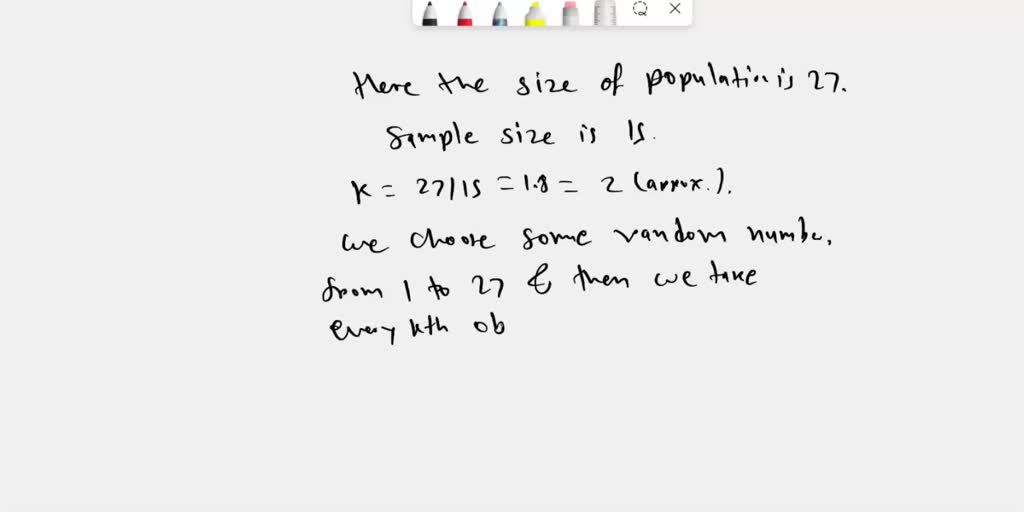 Here the size of population is 27.
Sample size is 15.
K = 27/15 = 1.8 = 2 (approx.).
we choose some random numbe,
from 1 to 27 & then we take
every kth ob